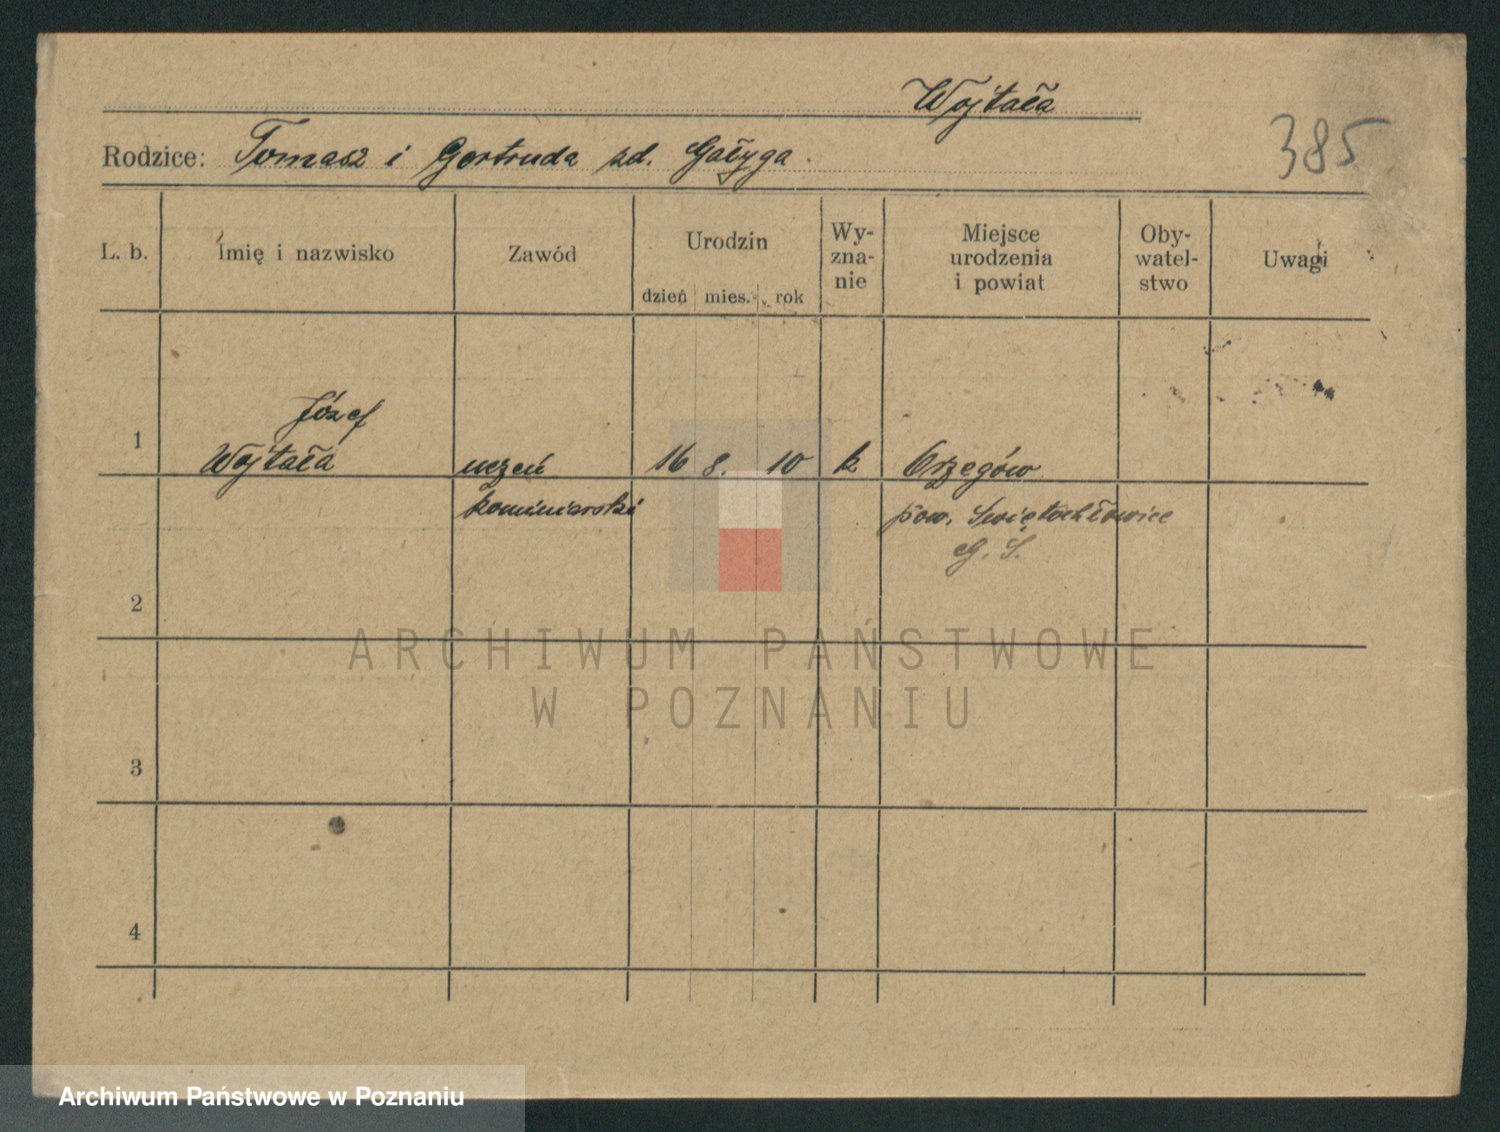 Wojtała
385
Rodzice: Tomasz i Gertruda zd. Gałyga.
L. b.
Imię i nazwisko
Zawód
Urodzin
dzień mies. rok
Wy-
zna-
nie
Miejsce
urodzenia
i powiat
Oby-
watel-
stwo
Uwagi
1
Józef
Wojtała
uczeń
kominiarski
16 8. 10
k
Orzegów
pow. Świętochłowice
G. Ś.
2
3
4
ARCHIWUM PAŃSTWOWE
W POZNANIU
Archiwum Państwowe w Poznaniu